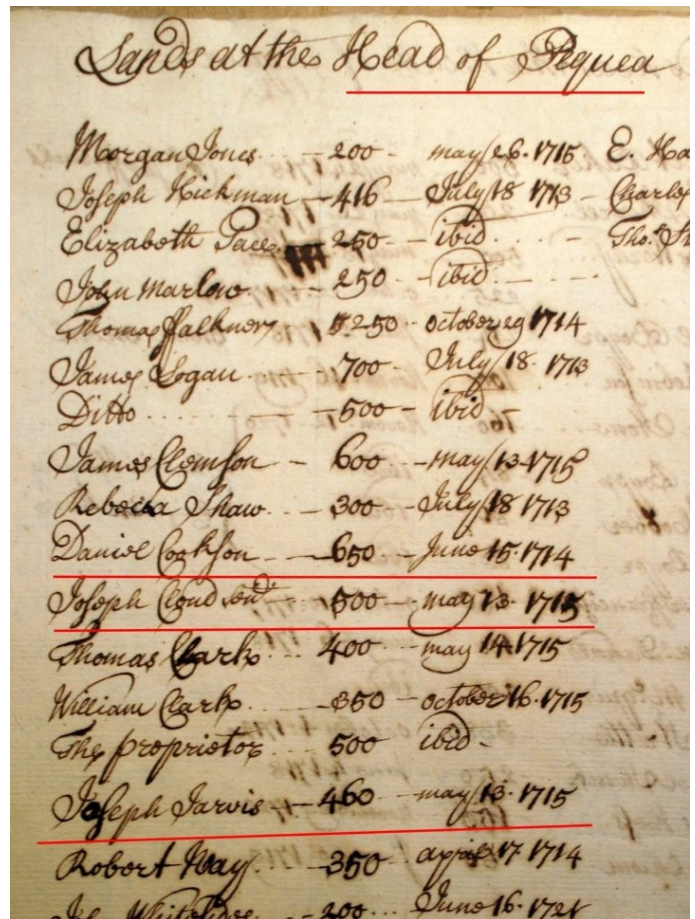 Lands at the Head of Pequea
Morgan Jones - 200 - may 26. 1715 E. Ha
Joseph Hickman - 416 - July 18 1713 - Charles
Elizabeth Pace - 250 - ibid - Tho.s
John marlow - 250 - ibid -
Thomas ffalkner 250 - october 29 1714
James Logan - 700 - July 18. 1713
Ditto - 500 - ibid -
James Clemson - 600 - may 13 1715
Rebecca Shaw - 300 - July 18 1713
Daniel Cookson - 650 - June 15. 1714
Joseph Cloud - 500 - may 13. 1715
Thomas Clark - 400 - may 14. 1715
William Clark - 350 - october 16. 1715
The proprietor - 500 ibid -
Joseph Jarvis - 460 - may 13. 1715
Robert Hay - 350 - april 17 1714
Whitehill - 200 - June 16. 1721